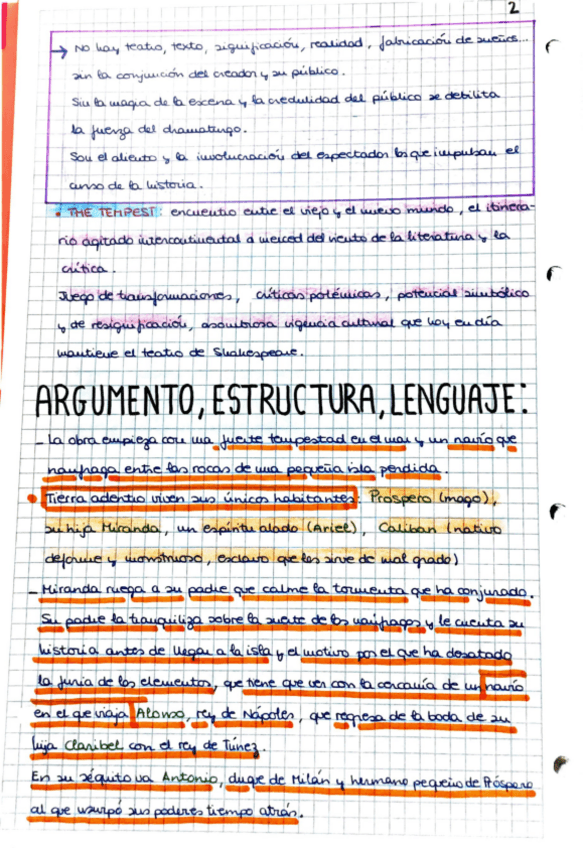 2
→ No hay teatro, texto, significación, realidad, fabricación de sueños...
sin la conjunción del creador y su público.
Sin la magia de la escena y la credulidad del público se debilita
la fuerza del dramaturgo.
Son el aliento y la involucración del espectador los que impulsan el
curso de la historia.
• THE TEMPEST: encuentro entre el viejo y el nuevo mundo, el itinera-
rio agitado intercontinental a merced del viento de la literatura y la
crítica.
Juego de transformaciones, críticas polémicas, potencial simbólico
y de resignificación, asombrosa vigencia cultural que hoy en día
mantiene el teatro de Shakespeare.
ARGUMENTO, ESTRUCTURA, LENGUAJE:
- La obra empieza con una fuerte tempestad en el mar y un navío que
naufraga entre las rocas de una pequeña isla perdida.
• Tierra adentro viven sus únicos habitantes: Próspero (mago),
su hija Miranda, un espíritu alado (Ariel), Caliban (nativo
deforme y monstruoso, esclavo que les sirve de mal grado)
- Miranda ruega a su padre que calme la tormenta que ha conjurado.
Su padre la tranquiliza sobre la suerte de los naúfragos y le cuenta su
historia antes de llegar a la isla y el motivo por el que ha desatado
la furia de los elementos, que tiene que ver con la cercanía de un navío
en el que viaja Alonso, rey de Nápoles, que regresa de la boda de su
hija Claribel con el rey de Túnez.
En su séquito va Antonio, duque de Milán y hermano pequeño de Próspero
al que usurpó sus poderes tiempo atrás.